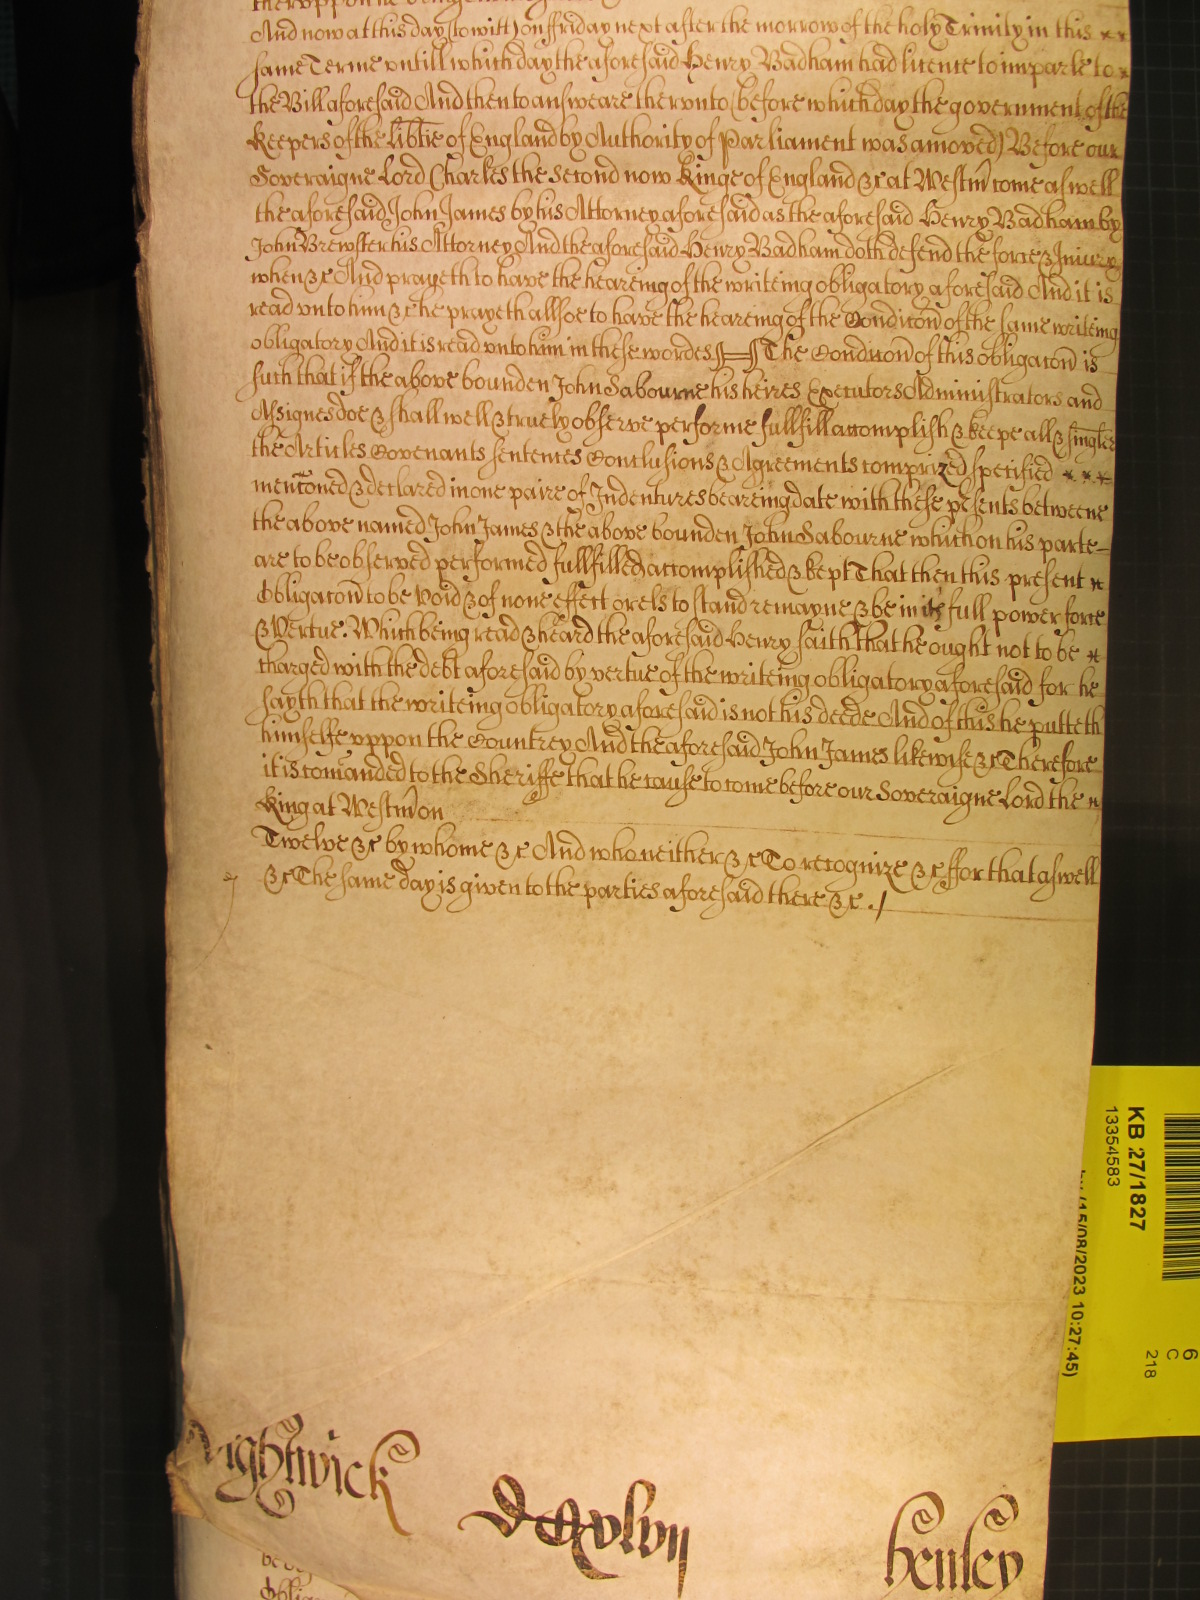 And now at this day (to witt) on ffriday next after the morrow of the holy Trinity in this
same Terme untill which day the aforesaid Henry Badham had licence to imparle to
the Bill aforesaid And then to answeare therunto (before which day the government of the
Keepers of the lib͞tie of England by Authority of Parliament was amoved) Before our
Soveraigne Lord Charles the second now Kinge of England &c at Westm͞ come aswell
the aforesaid John James by his Attorney aforesaid as the aforesaid Henry Badham by
John Brewster his Attorney And the aforesaid Henry Badham doth defend the force & Iniury
when &c And prayeth to have the heareing of the writeing obligatory aforesaid And it is
read unto him &c he prayeth allsoe to have the heareing of the Condic͞on of the same writeing
obligatory And it is read unto him in these wordes The Condic͞on of this obligac͞on is
such that if the above bounden John Sabourne his heires Executors Administrators and
Assignes doe & shall well & truely observe performe fullfill accomplish & keepe all & singler
the Articles Covenants sentences Conclusions & Agreements comprized specified
menc͞oned & declared in one paire of Indentures beareing date with these p͞esents betweene
the above named John James & the above bounden John Sabourne which on his parte
are to be observed performed fullfilled accomplished & kept That then this present
Obligac͞on to be void & of none effect or els to stand remayne & be in its full power force
& Vertue. Which being read & heard the aforesaid Henry saith that he ought not to be
charged with the debt aforesaid by vertue of the writeing obligatory aforesaid for he
sayth that the writeing obligatory aforesaid is not his deede And of this he putteth
himselfe uppon the Countrey And the aforesaid John James likewise &c Therefore
it is com͞anded to the Sheriffe that he cause to come before our Soveraigne Lord the
King at Westm͞ on
Twelve &c by whome &c And who neither &c To recognize &c ffor that aswell
&c The same day is given to the parties aforesaid there &c.
KB 27/1827
13354583
(15/08/2023 10:27:45)
6
C
218
henley